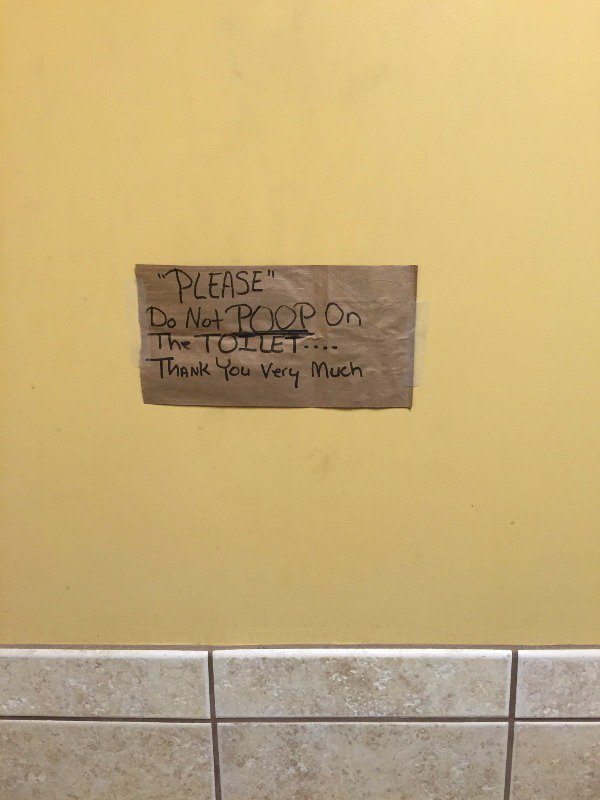 "PLEASE"
Do Not POOP On
The TOILET....
THANK You Very Much